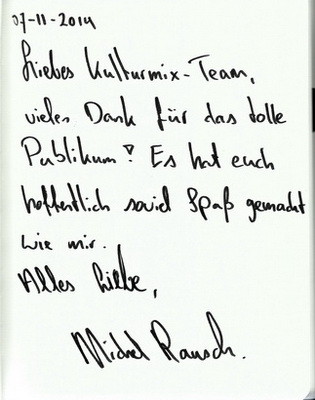 07-11-2014
Liebes Kulturmix-Team,
vielen Dank für das tolle
Publikum! Es hat euch
hoffentlich soviel Spaß gemacht
wie mir.
Alles Liebe,
Michel Rausch.